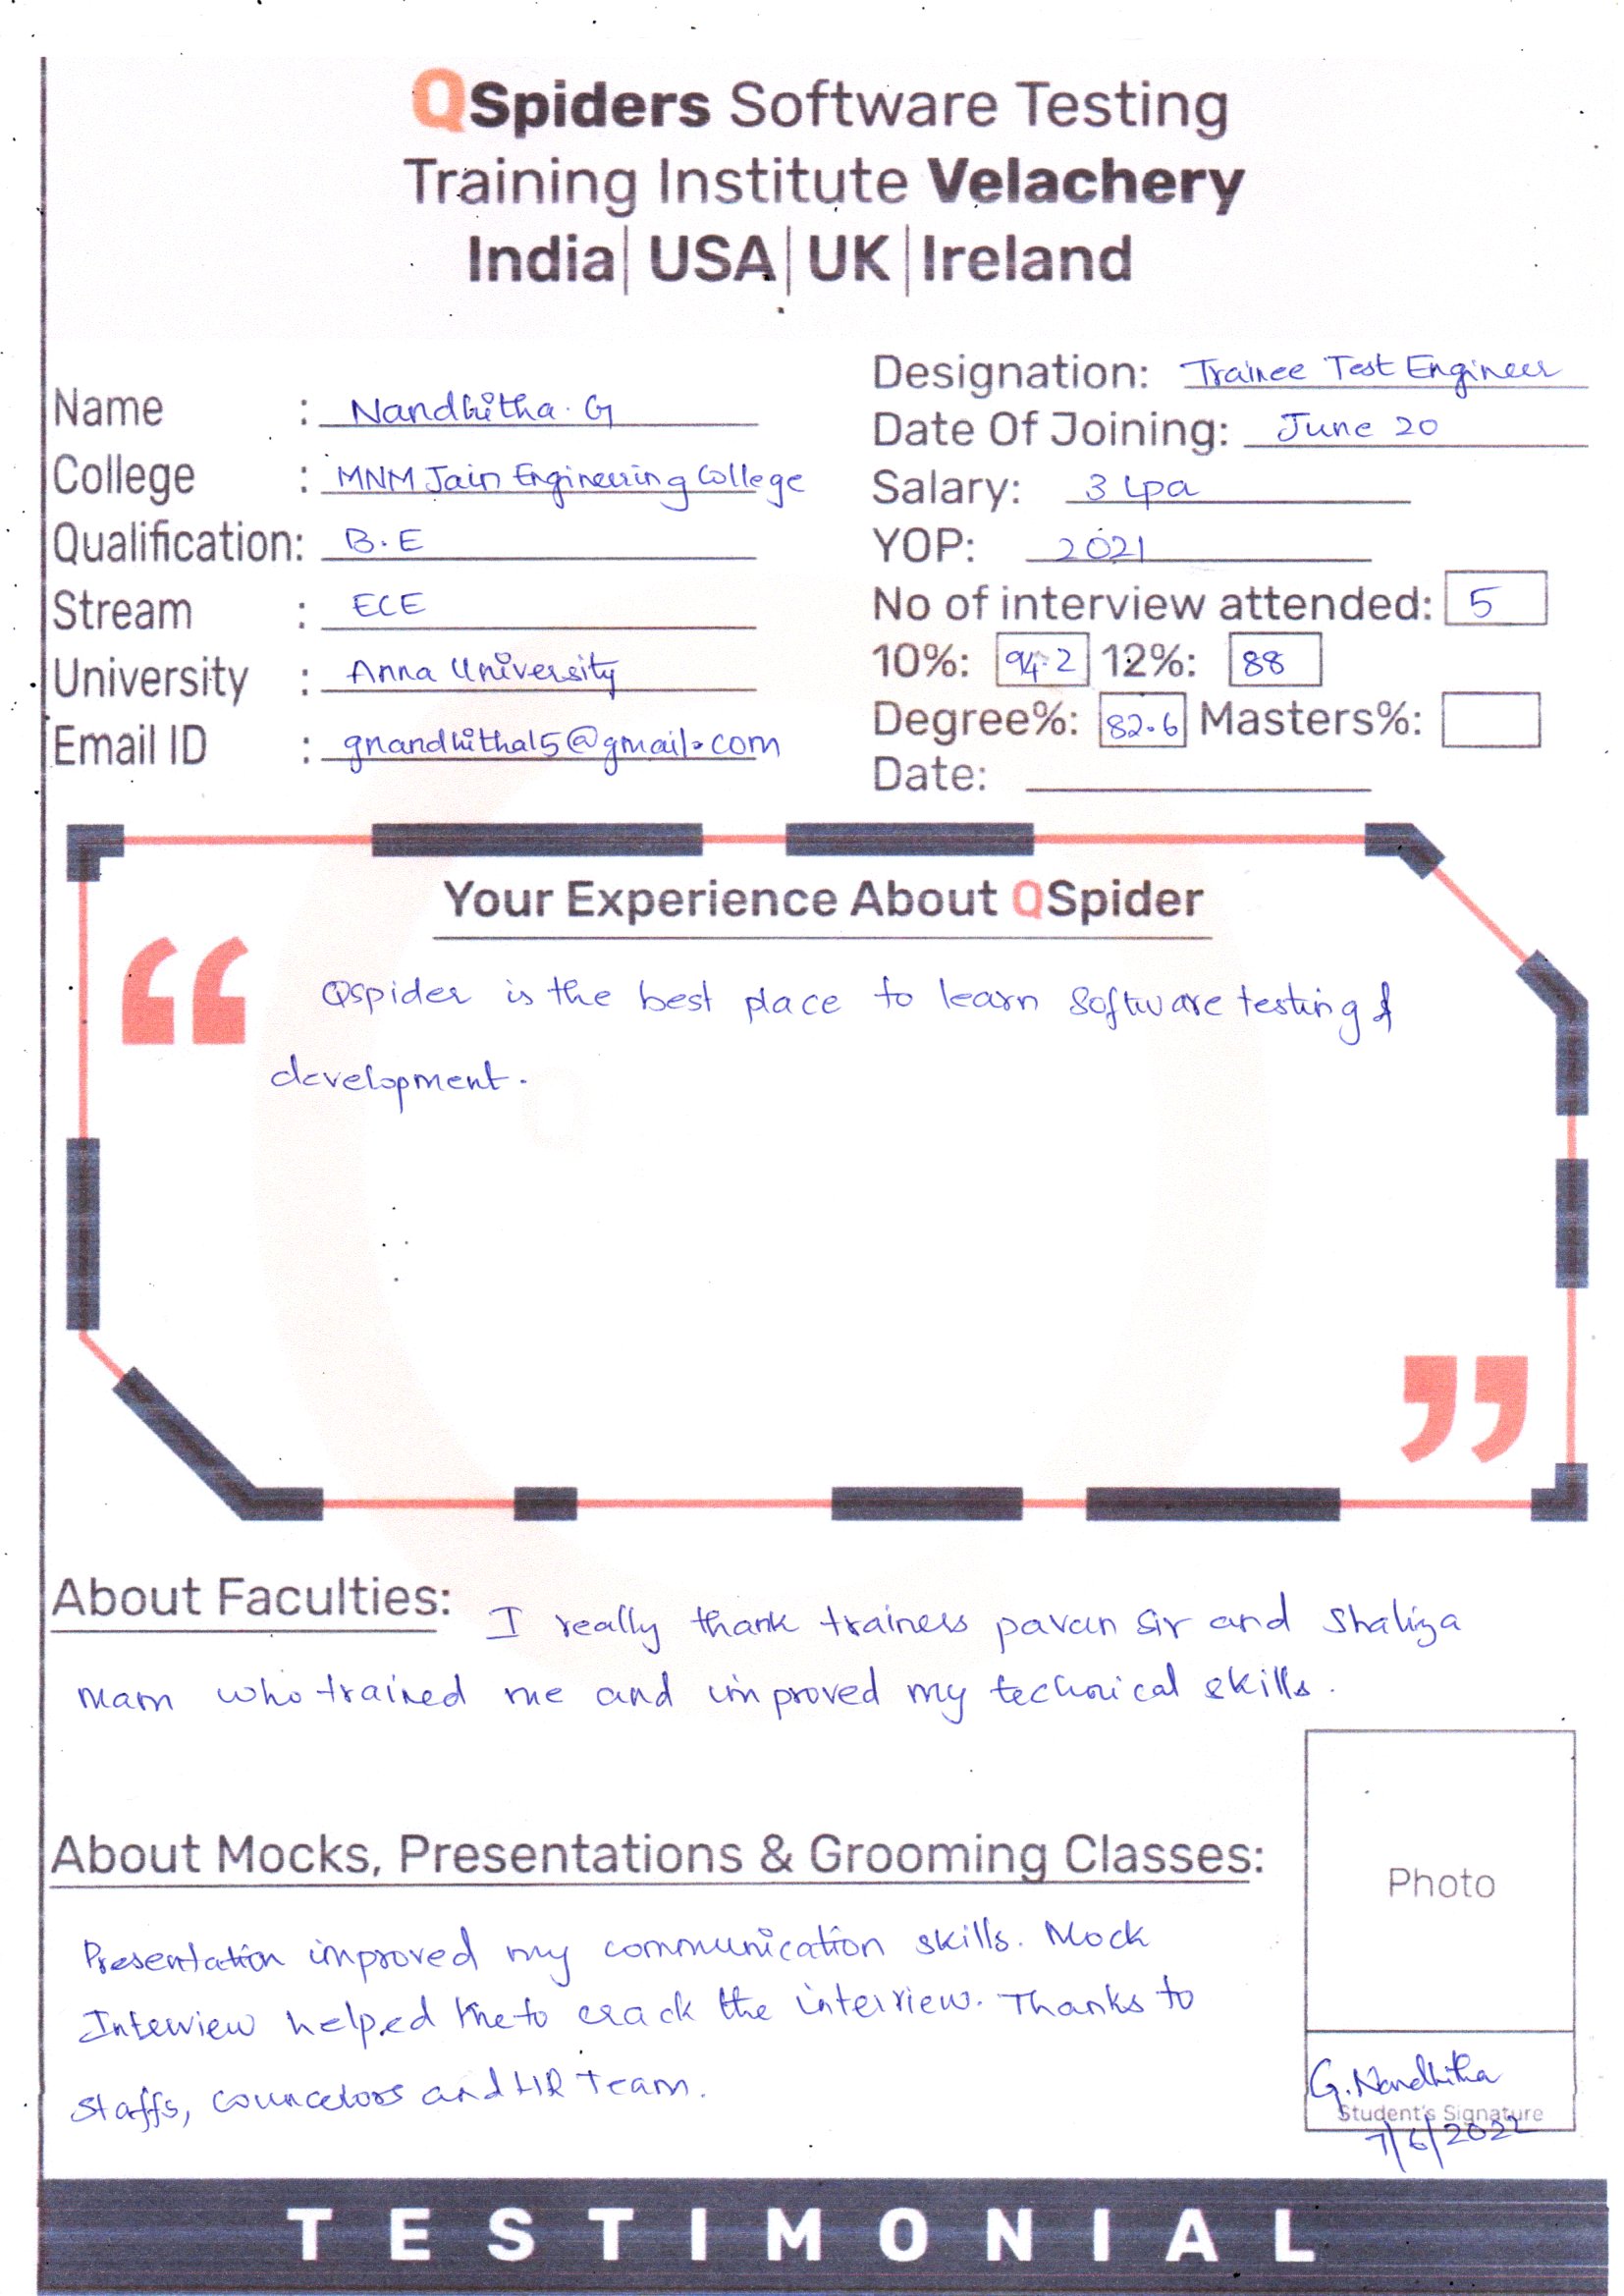 QSpiders Software Testing
Training Institute Velachery
India| USA| UK |Ireland
Name : Nandhitha. G
College : MNM Jain Engineering College
Qualification: B.E
Stream : ECE
University : Anna University
Email ID : gnandhitha15@gmail.com
Designation: Trainee Test Engineer
Date Of Joining: June 20
Salary: 3 lpa
YOP: 2021
No of interview attended: 5
10%: 94.2 12%: 88
Degree%: 82.6 Masters%:
Date:
Your Experience About QSpider
Qspider is the best place to learn Software testing &
development.
About Faculties: I really thank trainers pavan sir and Shaliza
mam who trained me and improved my technical skills.
About Mocks, Presentations & Grooming Classes:
Presentation improved my communication skills. Mock
Interview helped me to crack the interview. Thanks to
Staffs, councelors and HR Team.
Photo
G. Nandhitha
Student's Signature
7/6/2022
TESTIMONIAL